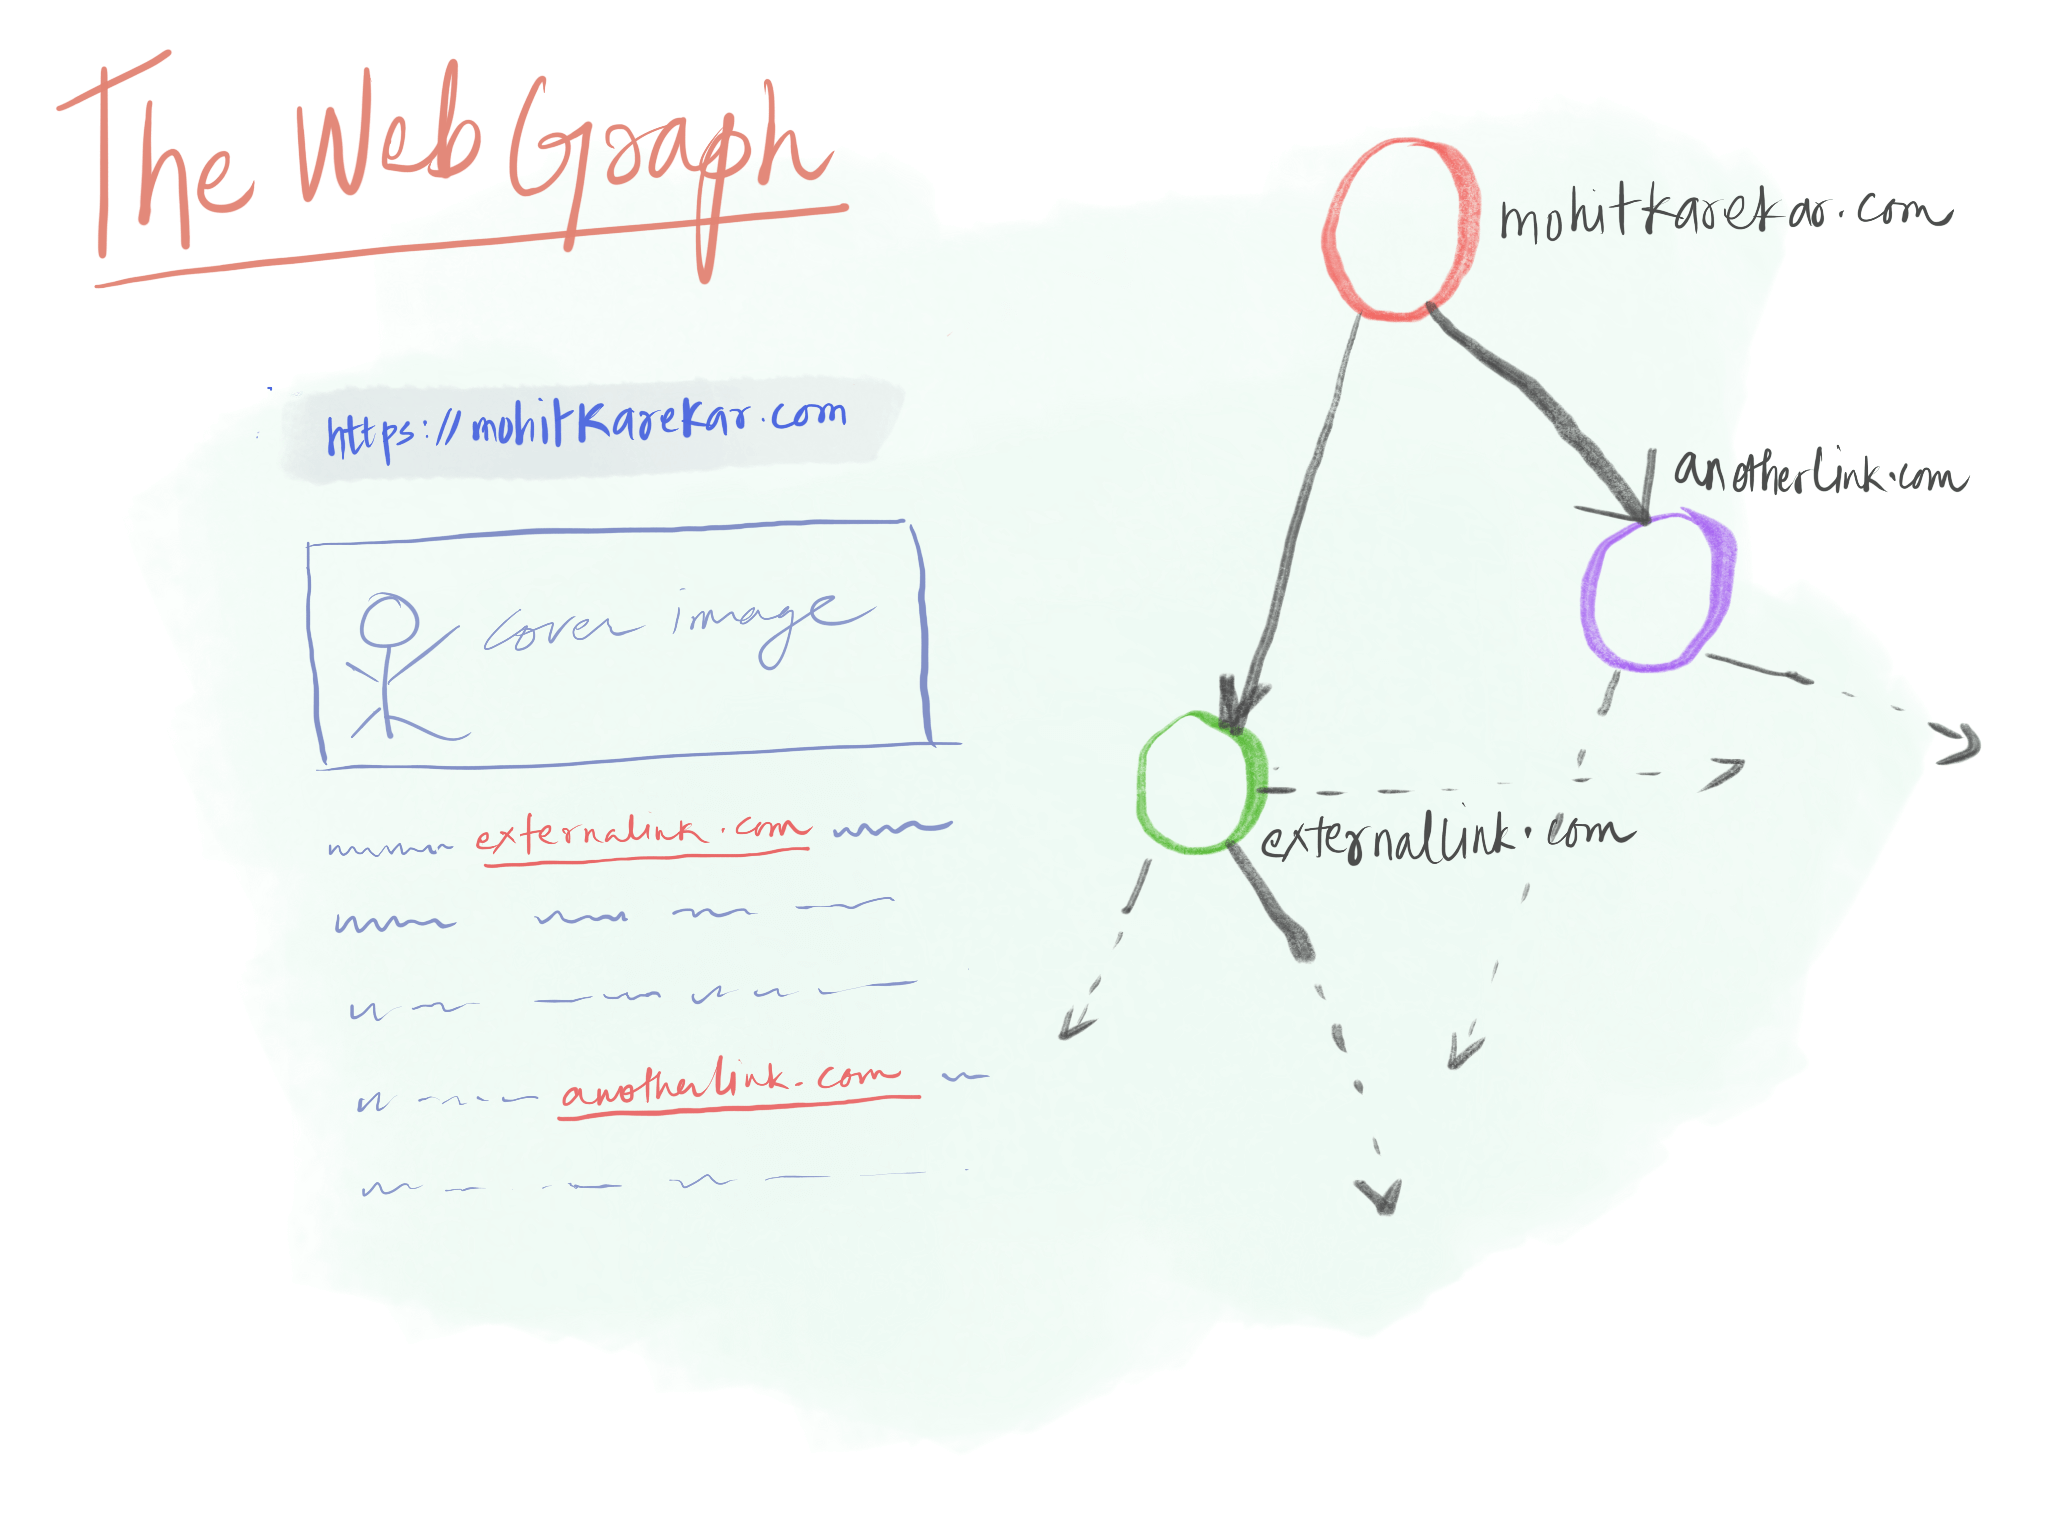 The Web Graph
https://mohitkarekar.com
cover image
externalink.com
anotherlink.com
mohitkarekar.com
anotherlink.com
externallink.com